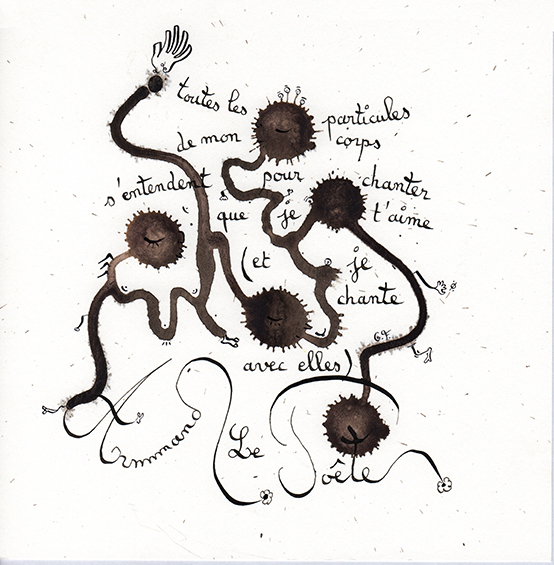 toutes les particules
de mon corps
s'entendent pour chanter
que je t'aime
(et je
chante
avec elles)
G.F.
Armmand Le Poête